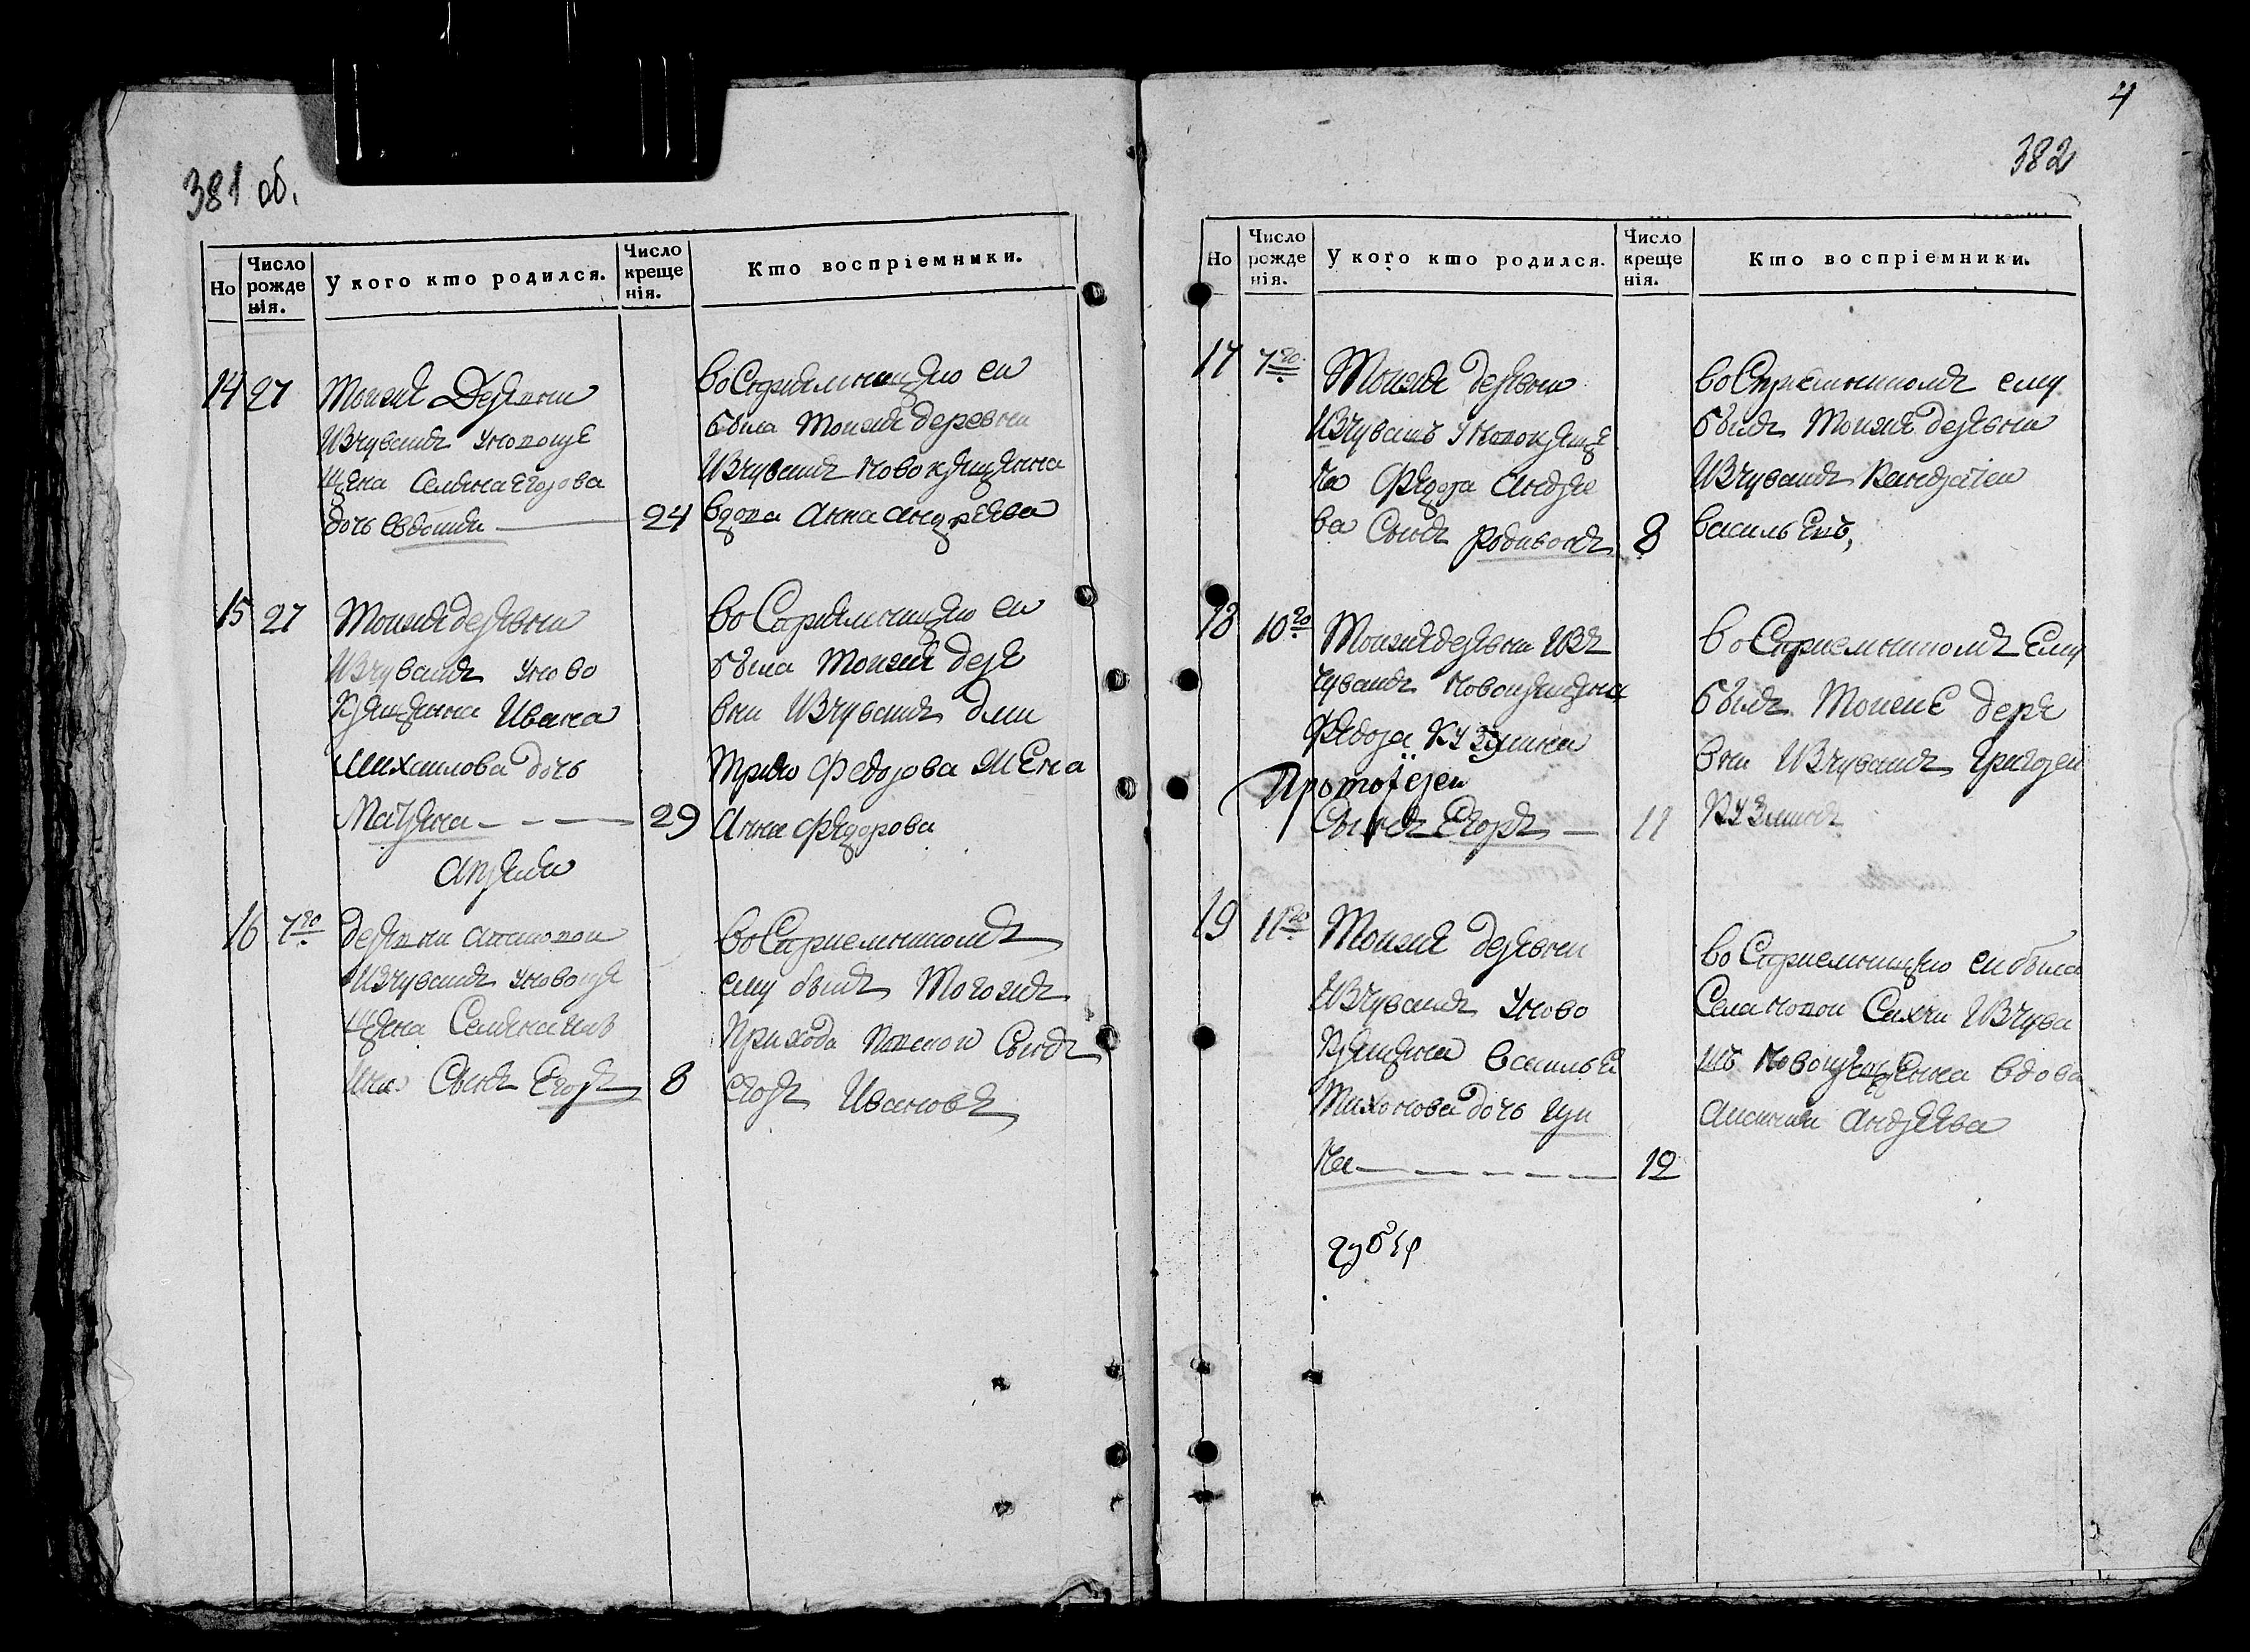 4
381 об.
382
Но
Число рожденія.
У кого кто родился.
Число крещенія.
Кто воспріемники.
14 27
Тоижѣ Деревни
Изчувашъ Уновокре
щена Семена Егорова
дочь Евдокия 24
воСприемницею еи
была Тоижѣ деревни
Изчувашъ новокрещенна
вдова Анна андреева
15 27
Тоижѣ деревни
Изчувашъ Уново
крещенна Ивана
Михаилова дочь
Матрена 29
воСприемницею еи
была Тоижѣ дере
вни Изчувашъ дми
трия Федорова жена
Анна Федорова
Апреля
16 7го
деревни
Изчувашъ Уновокре
щена Семена
Сынъ Егоръ 8
воСприемникомъ
ему былъ Тогожъ
Прихода Сынъ
Егоръ Ивановъ
Но
Число рожденія.
У кого кто родился.
Число крещенія.
Кто воспріемники.
17 7го
Тоижѣ деревни
Изчувашъ Уновокреще
на Федора Андрее
ва Сынъ Родивонъ 8
воСприемникомъ ему
былъ Тоижѣ деревни
Изчувашъ Кандратеи
васильевъ,
18 10го
Тоижѣ деревни Изъ
чувашъ новокрещена
Федора Кузмина
Протоіереи
Сынъ Егоръ 11
воСприемникомъ Ему
былъ Тоиже дере
вни Изчувашъ Григореи
Кузминъ
19 11го
Тоижѣ деревни
Изчувашъ Уново
крещена василья
Тихонова дочь Ири
на 12
воСприемницею еи была
Села новои Изчува
шъ новокрещенна вдова
Аксинья андреева